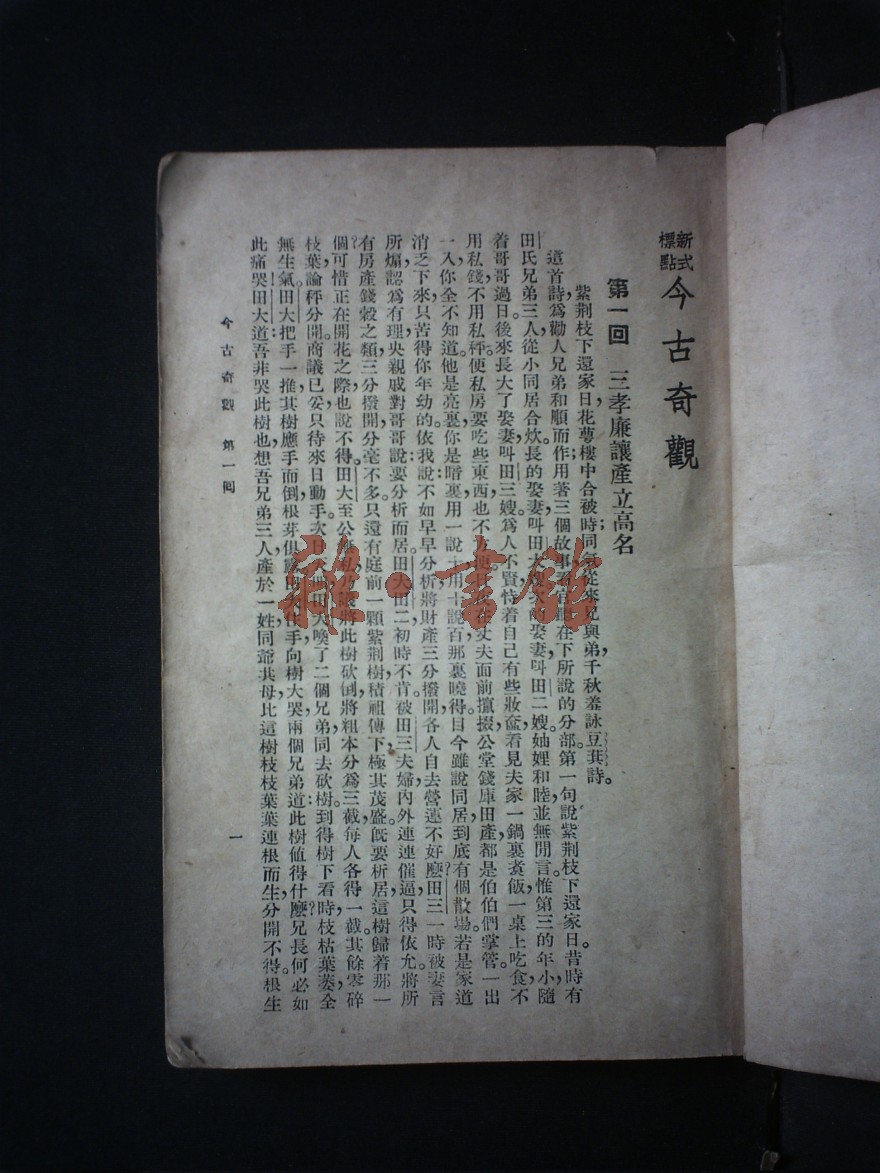 新式標點 今古奇觀
第一回 三孝廉讓產立高名
紫荊枝下還家日,花萼樓中合被時;同氣從來兄與弟,千秋羞詠豆萁詩。
這首詩,爲勸人兄弟和順而作,用著三個故事,看官聽在下所說的分部。第一句說:紫荊枝下還家日。昔時有
田氏兄弟三人,從小同居合炊。長的娶妻叫田大嫂,次的娶妻叫田二嫂。妯娌和睦,並無閒言。惟第三的年小,隨
着哥哥過日。後來長大了,娶妻叫田三嫂。爲人不賢,恃着自己有些妝奩,看見夫家一鍋裏煑飯,一桌上吃食,不
用私錢,不用私秤,便私房要吃些東西,也不方便,日夜在丈夫面前攛掇:公堂錢庫田產,都是伯伯們掌管,一出
一入,你全不知道。他是亮裏,你是暗裏,用一說十,用十說百,那裏曉得。目今雖說同居,到底有個散場。若是家道
消乏下來,只苦得你年幼的。依我說,不如早早分析,將財產三分撥開,各人自去營運,不好麼?田三一時被妻言
所煽,認爲有理,央親戚對哥哥說,要分析而居。田大田二初時不肯,被田三夫婦內外連連催逼,只得依允。將所
有房產錢穀之類,三分撥開,分毫不多。只還有庭前一顆紫荊樹,積祖傳下,極其茂盛,旣要析居,這樹歸着那一
個?可惜正在開花之際,也說不得。田大至公無私,乃議將此樹砍倒,將粗本分爲三截,每人各得一截,其餘零碎
枝葉,論秤分開。商議已妥,只待來日動手。次日天明,田大喚了二個兄弟同去砍樹。到得樹下看時,枝枯葉萎,全
無生氣。田大把手一推,其樹應手而倒,根芽俱露。田大住手,向樹大哭。兩個兄弟道:此樹値得什麼?兄長何必如
此痛哭!田大道:吾非哭此樹也,想吾兄弟三人,產於一姓,同爺共母,比這樹枝枝葉葉,連根而生,分開不得。根生
今古奇觀 第一回
一
雜·書館